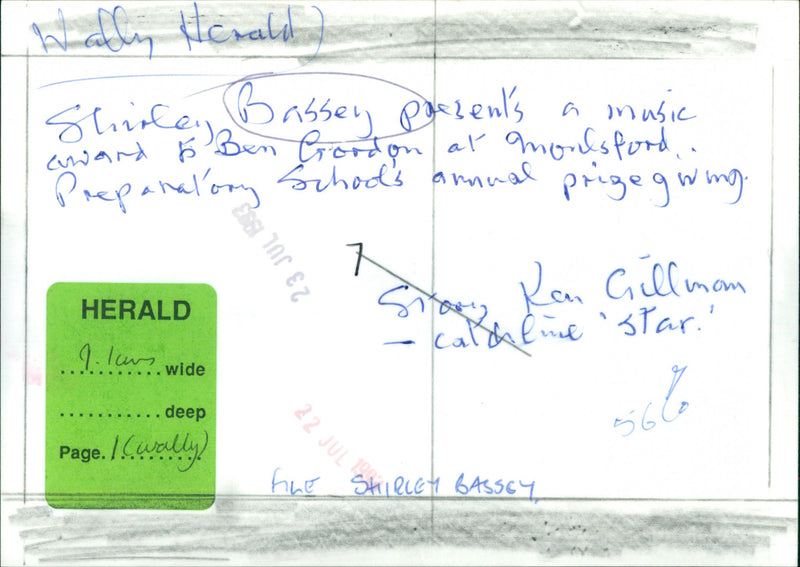 Wally Herald)
Shirley Bassey presents a music
award to Ben Gordon at Moulsford..
Preparatory School's annual prizegiving.
23 JUL 1993
7
Story Ken Gillman
– catchline 'star.'
HERALD
wide
deep
Page. 1 (wally)
56%
22 JUL 1993
FILE SHIRLEY BASSEY.